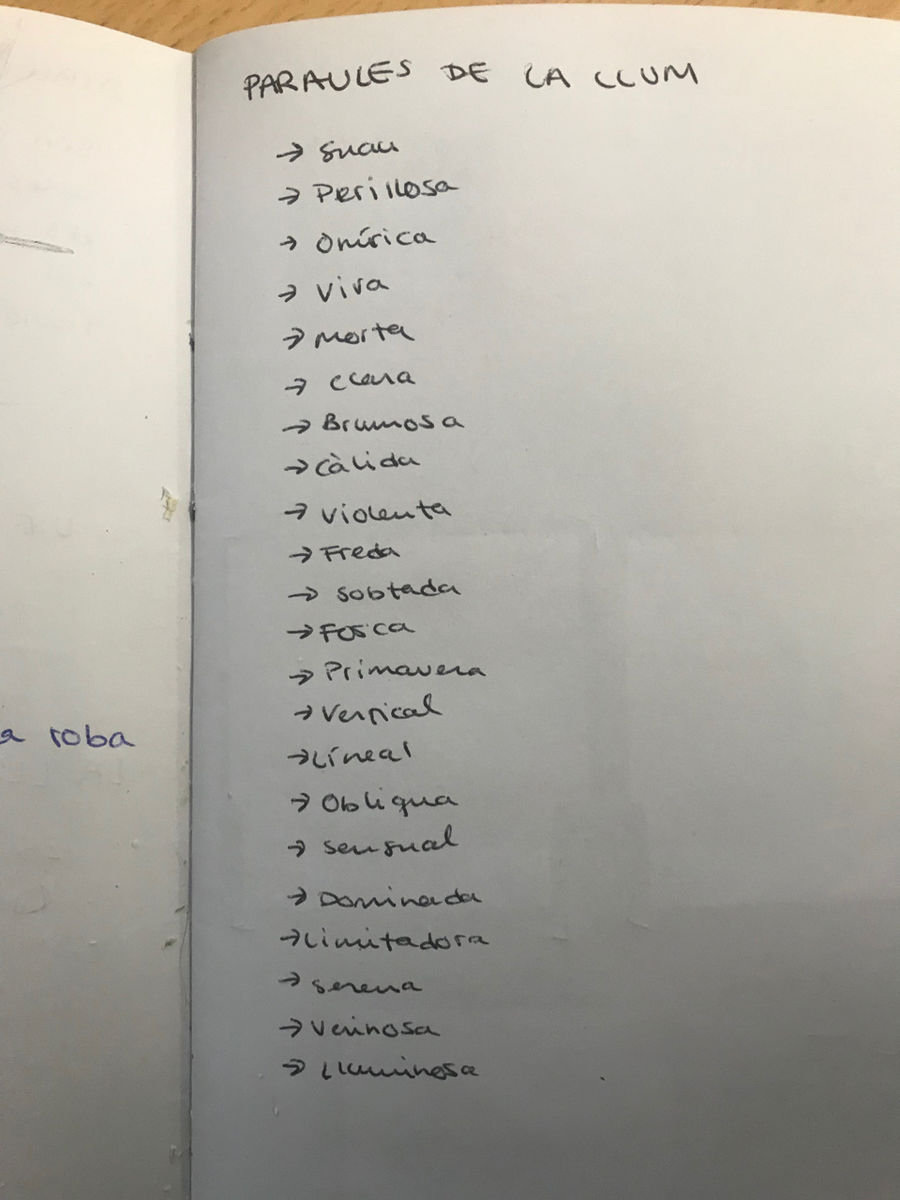 PARAULES DE LA LLUM
→ Suau
→ Perillosa
→ Onírica
→ Viva
→ Morta
→ Clara
→ Brumosa
→ Càlida
→ Violenta
→ Freda
→ Sobtada
→ Fosca
→ Primavera
→ Vertical
→ Líneal
→ Obliqua
→ Sensual
→ Dominada
→ Limitadora
→ Serena
→ Verinosa
→ Lluminosa
a roba